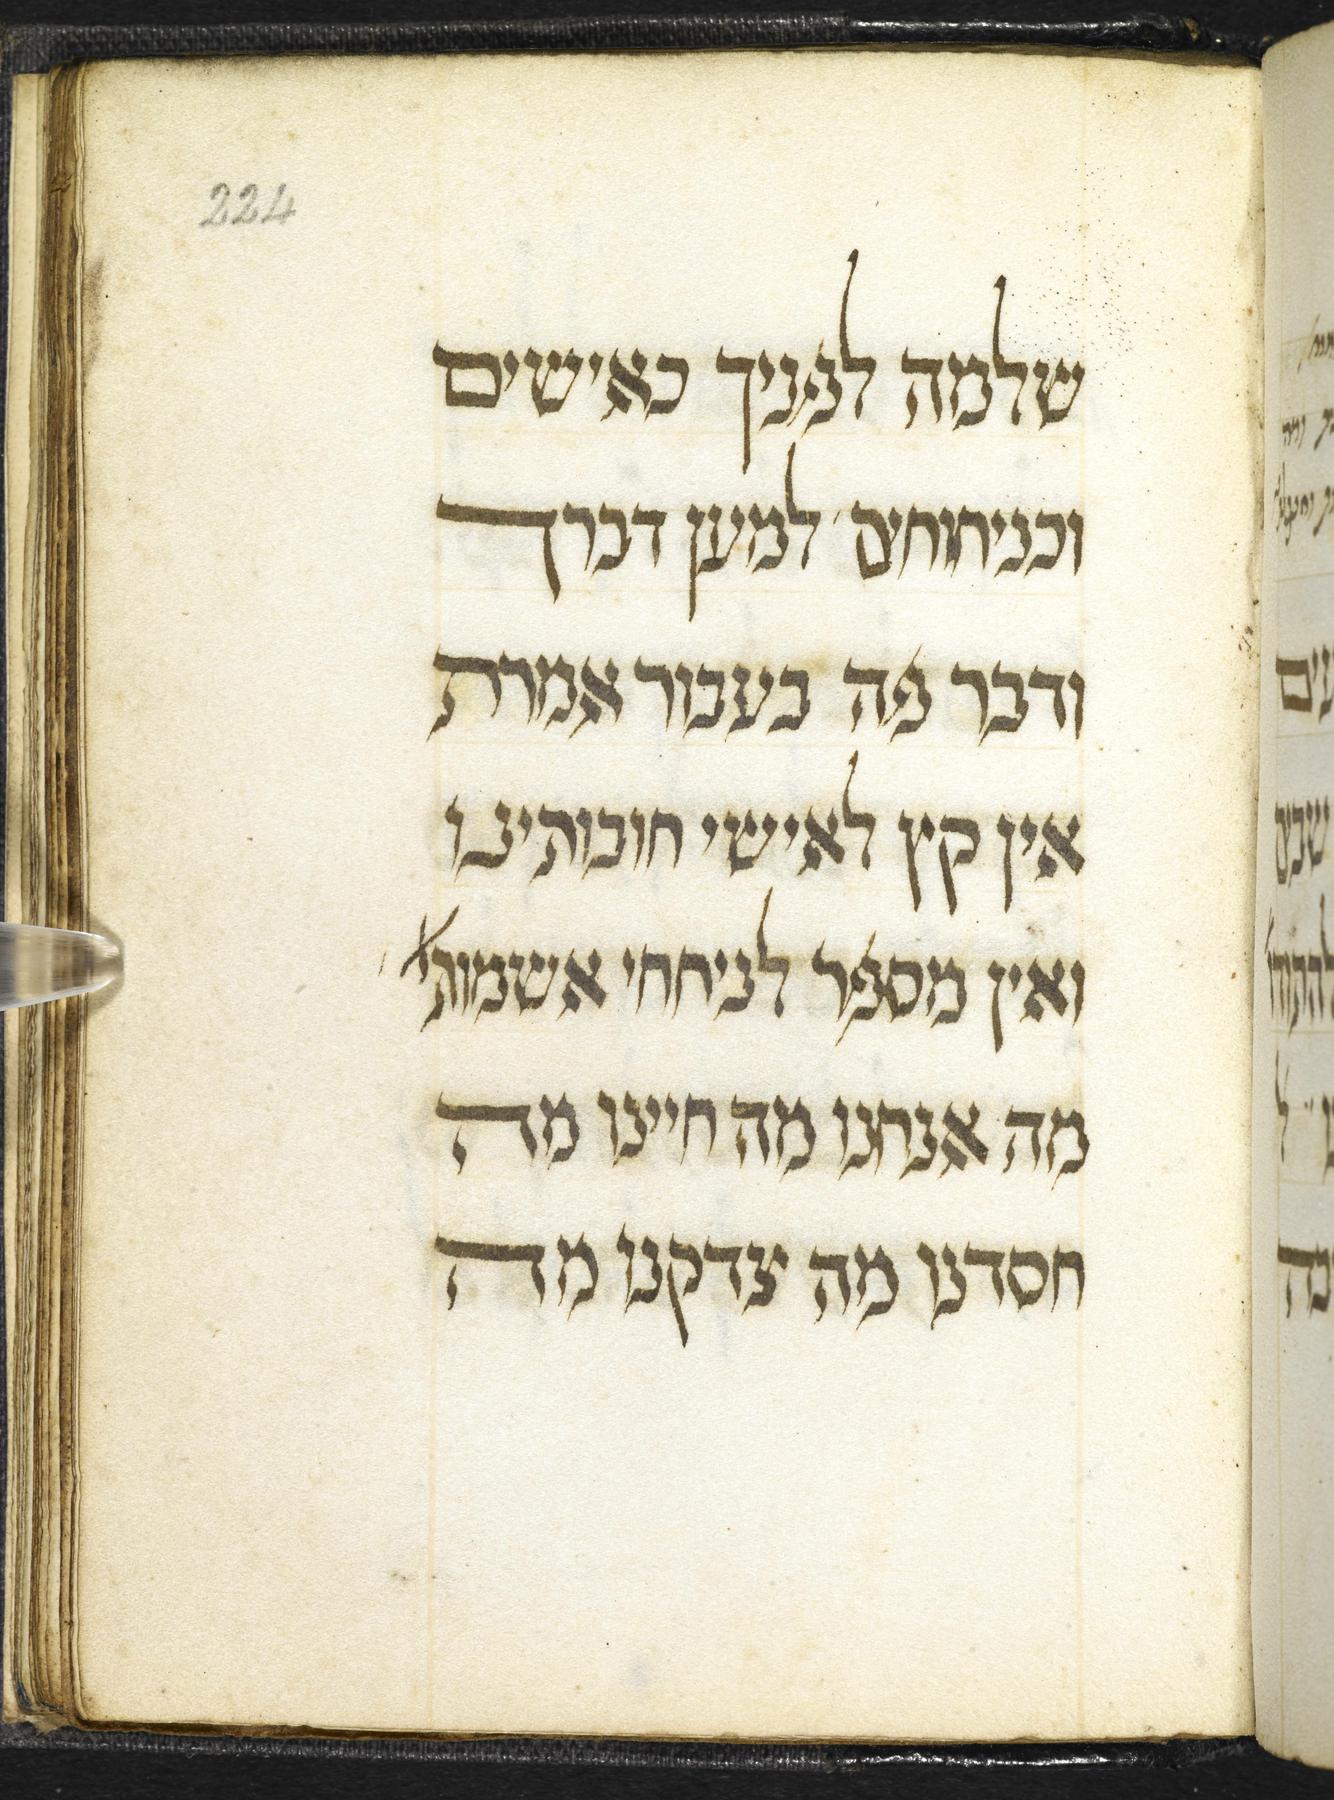 224
שלמה לפניך כאישים
וכניחוחים למען דברך
ודבר פה בעבור אמרת
אין קץ לאישי חובותינו
ואין מספר לניחחי אשמות
מה אנחנו מה חיינו מה
חסדנו מה צדקנו מה